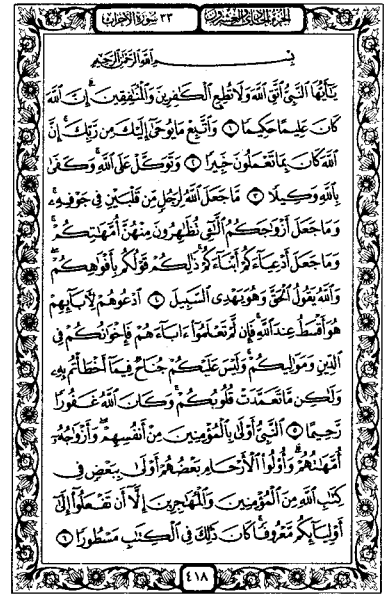 الجزء الحادي والعشرون
٣٣ سورة الأحزاب
بِسْمِ ٱللَّهِ ٱلرَّحْمَٰنِ ٱلرَّحِيمِ
يَٰٓأَيُّهَا ٱلنَّبِىُّ ٱتَّقِ ٱللَّهَ وَلَا تُطِعِ ٱلْكَٰفِرِينَ وَٱلْمُنَٰفِقِينَ ۗ إِنَّ ٱللَّهَ
كَانَ عَلِيمًا حَكِيمًا ١ وَٱتَّبِعْ مَا يُوحَىٰٓ إِلَيْكَ مِن رَّبِّكَ ۚ إِنَّ
ٱللَّهَ كَانَ بِمَا تَعْمَلُونَ خَبِيرًا ٢ وَتَوَكَّلْ عَلَى ٱللَّهِ ۚ وَكَفَىٰ
بِٱللَّهِ وَكِيلًا ٣ مَّا جَعَلَ ٱللَّهُ لِرَجُلٍ مِّن قَلْبَيْنِ فِى جَوْفِهِۦ ۚ
وَمَا جَعَلَ أَزْوَٰجَكُمُ ٱلَّٰٓـِٔى تُظَٰهِرُونَ مِنْهُنَّ أُمَّهَٰتِكُمْ ۚ
وَمَا جَعَلَ أَدْعِيَآءَكُمْ أَبْنَآءَكُمْ ۚ ذَٰلِكُمْ قَوْلُكُم بِأَفْوَٰهِكُمْ ۖ
وَٱللَّهُ يَقُولُ ٱلْحَقَّ وَهُوَ يَهْدِى ٱلسَّبِيلَ ٤ ٱدْعُوهُمْ لِءَابَآئِهِمْ
هُوَ أَقْسَطُ عِندَ ٱللَّهِ ۚ فَإِن لَّمْ تَعْلَمُوٓا۟ ءَابَآءَهُمْ فَإِخْوَٰنُكُمْ فِى
ٱلدِّينِ وَمَوَٰلِيكُمْ ۚ وَلَيْسَ عَلَيْكُمْ جُنَاحٌ فِيمَآ أَخْطَأْتُم بِهِۦ
وَلَٰكِن مَّا تَعَمَّدَتْ قُلُوبُكُمْ ۚ وَكَانَ ٱللَّهُ غَفُورًا
رَّحِيمًا ٥ ٱلنَّبِىُّ أَوْلَىٰ بِٱلْمُؤْمِنِينَ مِنْ أَنفُسِهِمْ ۖ وَأَزْوَٰجُهُۥٓ
أُمَّهَٰتُهُمْ ۗ وَأُو۟لُوا۟ ٱلْأَرْحَامِ بَعْضُهُمْ أَوْلَىٰ بِبَعْضٍ فِى
كِتَٰبِ ٱللَّهِ مِنَ ٱلْمُؤْمِنِينَ وَٱلْمُهَٰجِرِينَ إِلَّآ أَن تَفْعَلُوٓا۟ إِلَىٰٓ
أَوْلِيَآئِكُم مَّعْرُوفًا ۚ كَانَ ذَٰلِكَ فِى ٱلْكِتَٰبِ مَسْطُورًا ٦
٤١٨